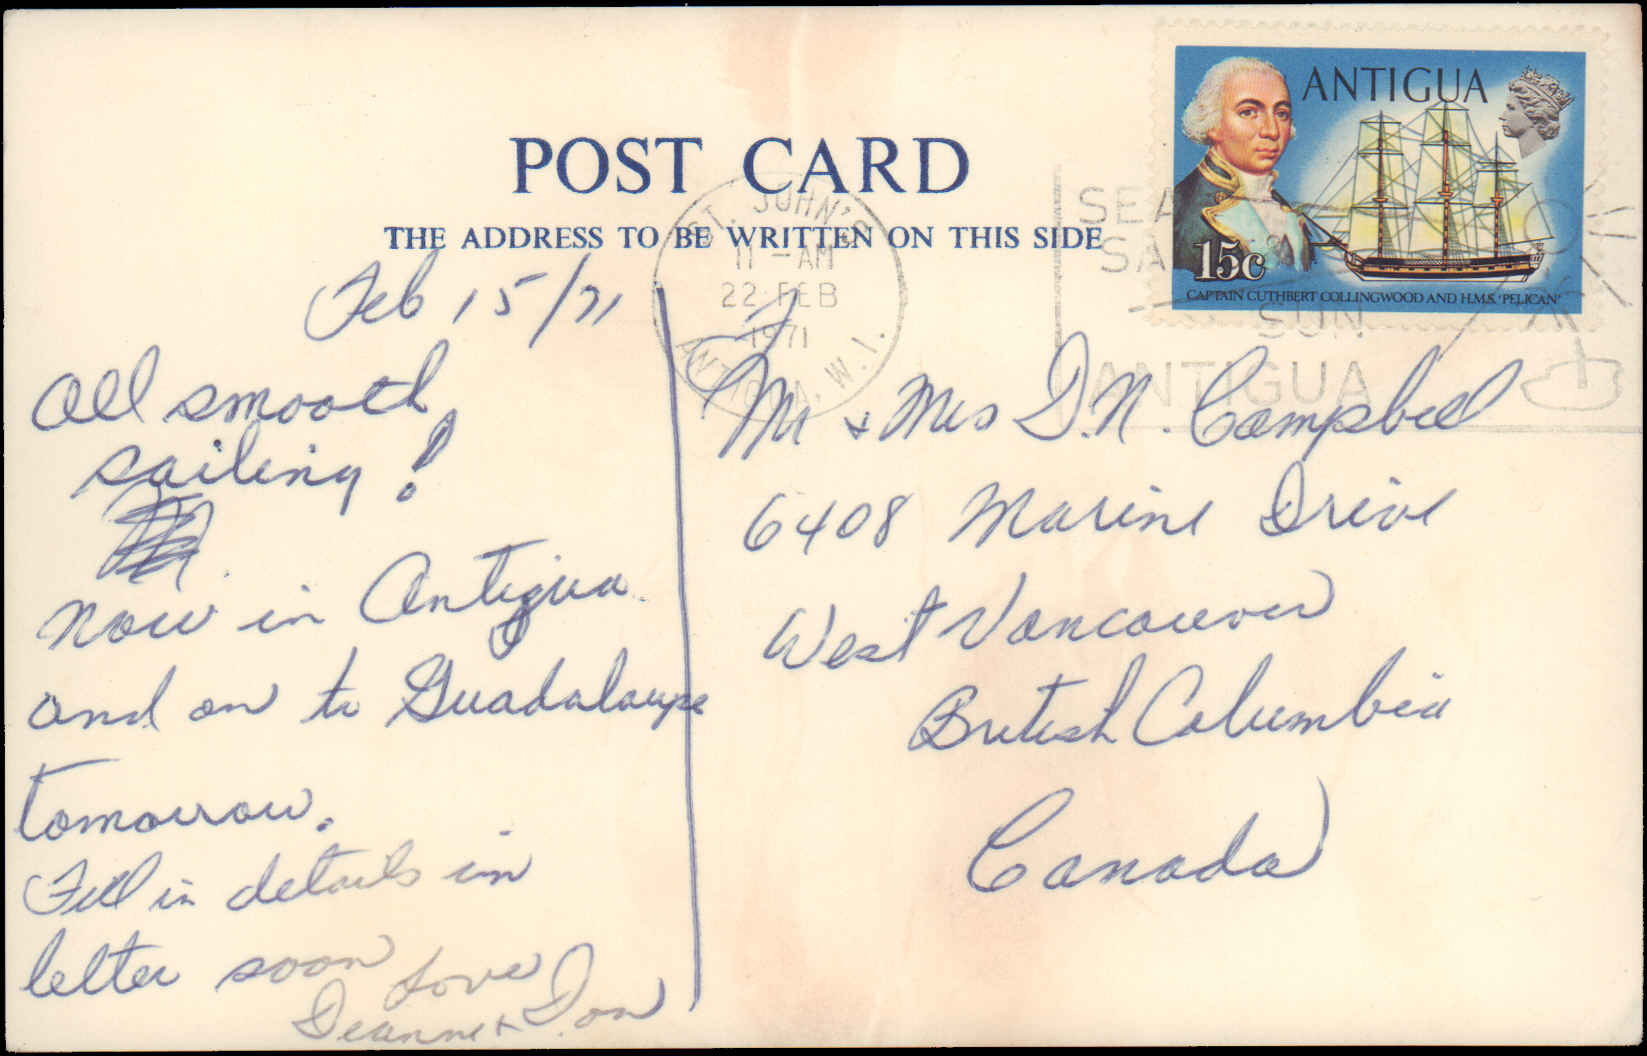 POST CARD
THE ADDRESS TO BE WRITTEN ON THIS SIDE
ANTIGUA
15c
CAPTAIN CUTHBERT COLLINGWOOD AND H.M.S. 'PELICAN'
ST. JOHN'S
11-AM
22 FEB
1971
ANTIGUA, W.I.
SEA
SA
SUN
ANTIGUA
Feb 15/71
All smooth
sailing!
Now in Antigua
and on to Guadaloupe
tomorrow.
Fill in details in
letter soon
Love
Deanne & Don
Mr & Mrs D.N. Campbell
6408 Marine Drive
West Vancouver
British Columbia
Canada